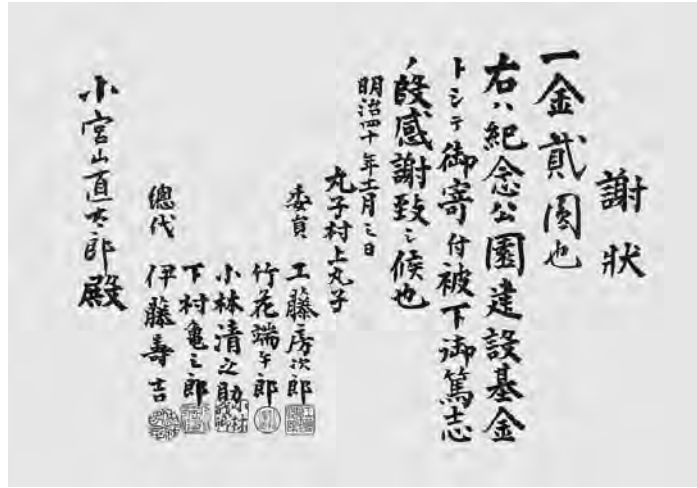 謝狀
一金貳圓也
右ハ紀念公園建設基金
トシテ御寄付被下御篤志
ノ段感謝致シ候也
明治四十年十一月三日
丸子村上丸子
委員 工藤房次郎
竹花端午郎
小林清之助
下村亀之郎
總代 伊藤壽吉
小宮山直太郎殿